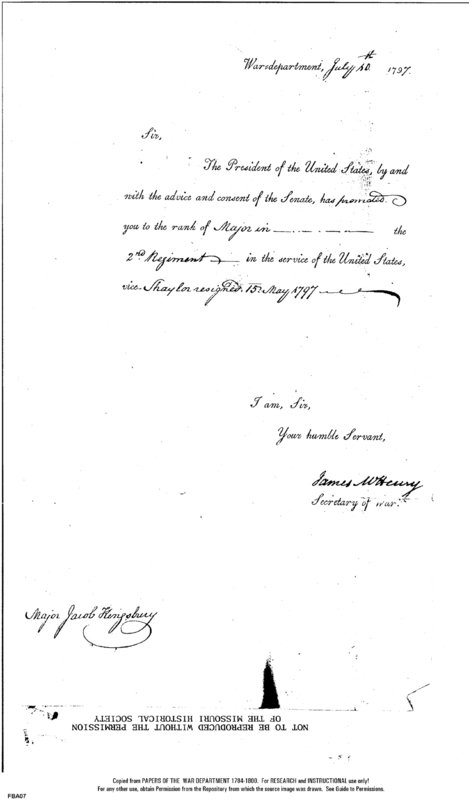 War department, July 10th 1797.
Sir,
The President of the United States, by and
with the advice and consent of the Senate, has promoted
you to the rank of Major in — . — . — the
2nd Regiment — in the service of the United States,
vice Shaylor resigned 15 May 1797 —
I am, Sir,
Your humble Servant,
James McHenry
Secretary of war.
Major Jacob Kingsbury
NOT TO BE REPRODUCED WITHOUT THE PERMISSION
OF THE MISSOURI HISTORICAL SOCIETY
Copied from PAPERS OF THE WAR DEPARTMENT 1784-1800. For RESEARCH and INSTRUCTIONAL use only!
For any other use, obtain Permission from the Repository from which the source image was drawn. See Guide to Permissions.
FBA07